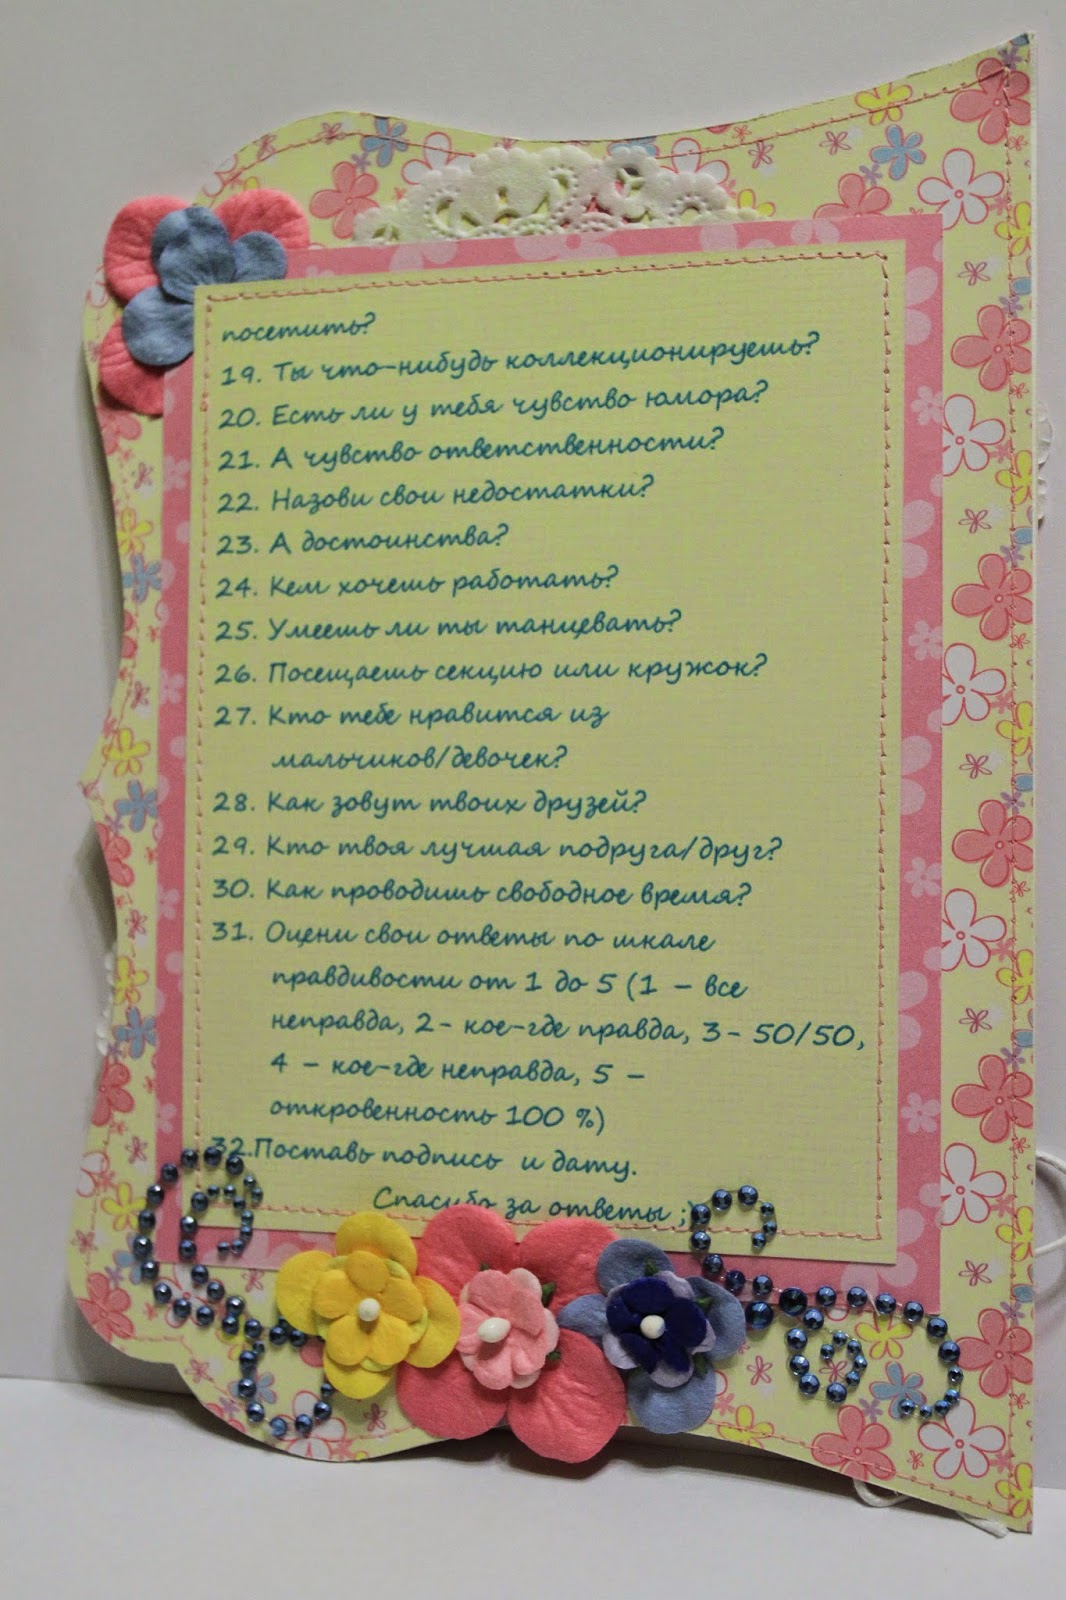 посетить?
19. Ты что-нибудь коллекционируешь?
20. Есть ли у тебя чувство юмора?
21. А чувство ответственности?
22. Назови свои недостатки?
23. А достоинства?
24. Кем хочешь работать?
25. Умеешь ли ты танцевать?
26. Посещаешь секцию или кружок?
27. Кто тебе нравится из
мальчиков/девочек?
28. Как зовут твоих друзей?
29. Кто твоя лучшая подруга/друг?
30. Как проводишь свободное время?
31. Оцени свои ответы по шкале
правдивости от 1 до 5 (1 – все
неправда, 2- кое-где правда, 3- 50/50,
4 – кое-где неправда, 5 –
откровенность 100 %)
32.Поставь подпись и дату.
Спасибо за ответы ;)